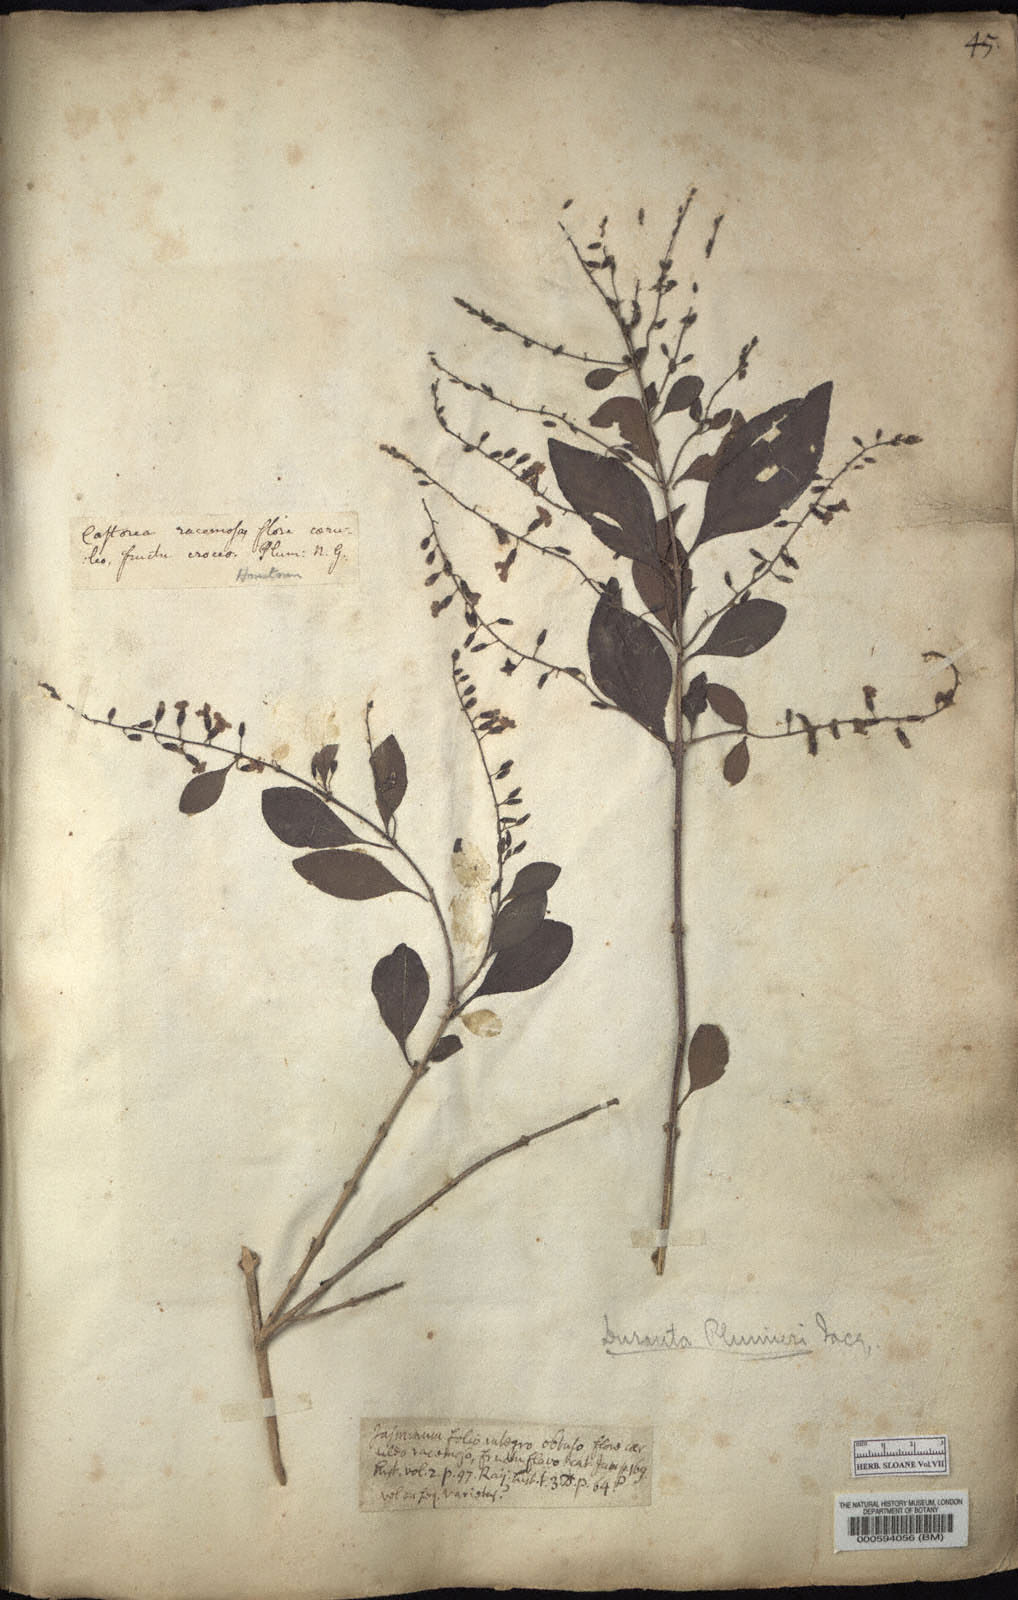 45.
Castorea racemosa, flore cœru-
leo, fructu croceo. Plum: N. G.
Duranta Plumieri Jacq.
Jasminum folio integro obtuso, flore cœ-
ruleo racemoso, fructu flavo Cat. Jam p. 169.
hist. vol. 2. p. 97. Raij. hist. t. 3. p. 64
vol varietas?
HERB. SLOANE Vol. VII
THE NATURAL HISTORY MUSEUM, LONDON
DEPARTMENT OF BOTANY
000594056 (BM)